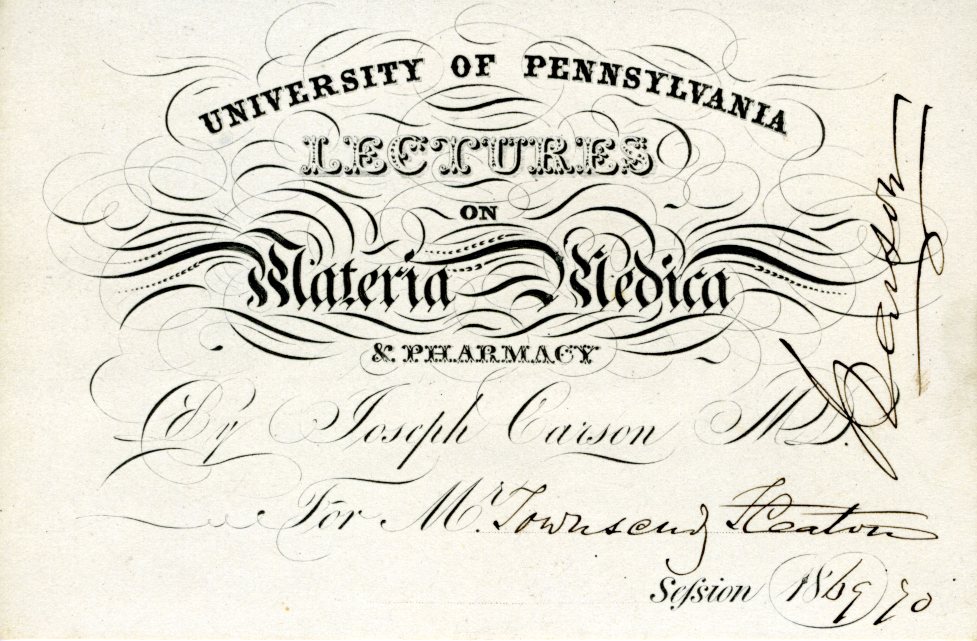 UNIVERSITY OF PENNSYLVANIA
LECTURES
ON
Materia Medica
& PHARMACY
By Joseph Carson M.D.
For Mr. Townsend Heaton
Session 1869/70
Carson